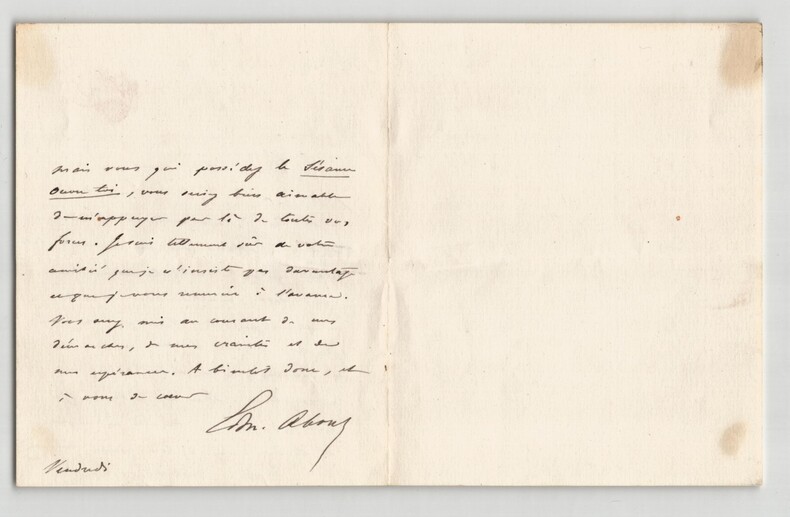 mais vous qui possédez le Sésame
ouvre toi, vous seriez bien aimable
de m'appuyer par là de toutes vos
forces. Je suis tellement sûr de votre
amitié que je n'insiste pas davantage
et que je vous remercie à l'avance.
Vous avez mis au courant de nos
démarches, de nos craintes et de
nos espérances. A bientôt donc, et
à vous de cœur
Edm. About
Vendredi